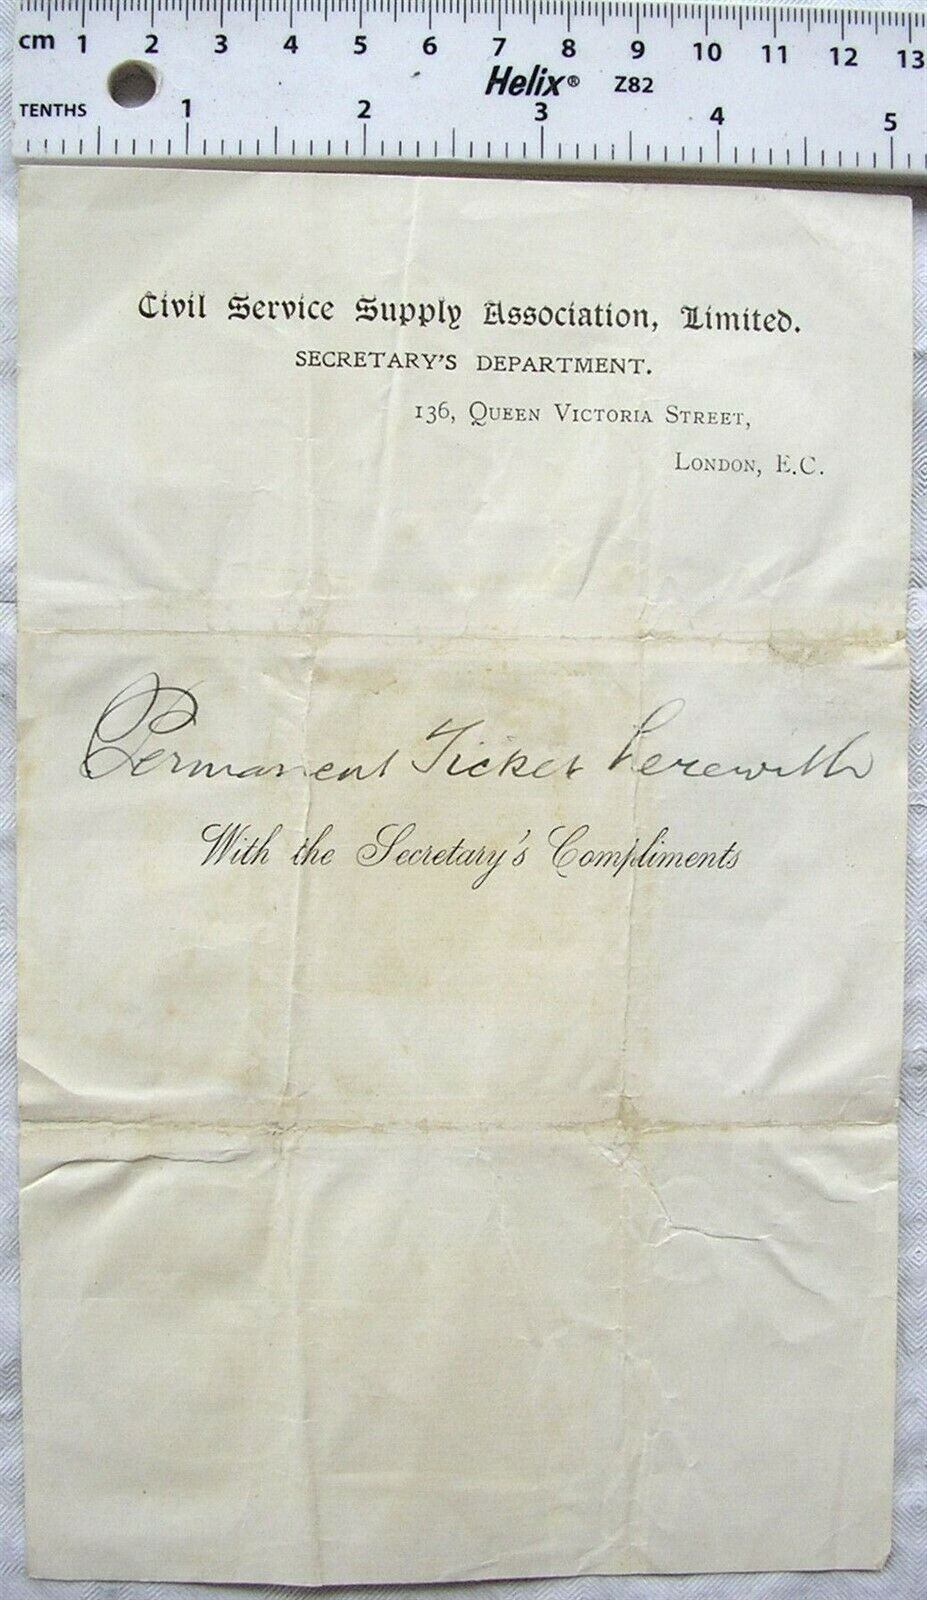 cm 1 2 3 4 5 6 7 8 9 10 11 12 13
Helix® Z82
TENTHS 1 2 3 4 5
Civil Service Supply Association, Limited.
SECRETARY'S DEPARTMENT.
136, QUEEN VICTORIA STREET,
LONDON, E.C.
Permanent Ticket herewith
With the Secretary's Compliments